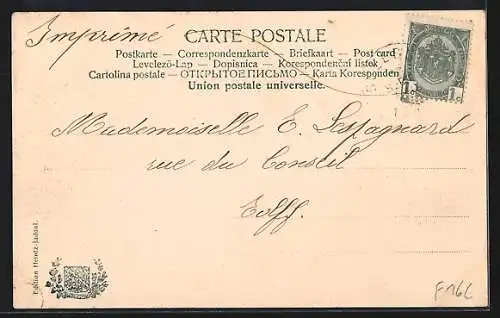 Imprimé
CARTE POSTALE
Postkarte — Correspondenzkarte — Briefkaart — Post card
Levelező-Lap — Dopisnica — Korespondenční lístek
Cartolina postale — ОТКРЫТОЕ ПИСЬМО — Karta Koresponden
Union postale universelle.
1 c. 1 c.
Mademoiselle E. Lespagnard
rue du Conseil
Eolff.
Edition Hentz-Jadoul.
F 16L